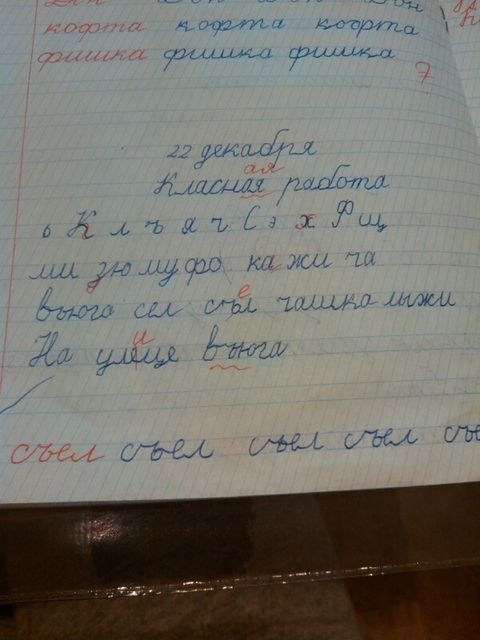 Дон Дон Дон Дон
кофта кофта кофта
фишка фишка фишка
7
22 декабря
ая
Класная работа
ь К л ъ я ч С э х Ф щ
ми зю му фо ка жи ча
вьюга сел съел чашка лыжи
На улице вьюга
съел съел съел съел съе